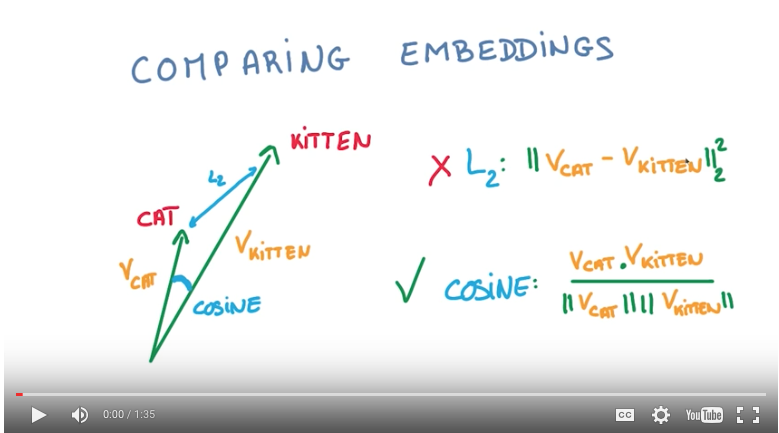 COMPARING EMBEDDINGS
KITTEN
L2
CAT
VCAT
VKITTEN
COSINE
X L2: ||VCAT - VKITTEN||²₂
✓ COSINE: VCAT.VKITTEN
||VCAT|| ||VKITTEN||
0:00 / 1:35
CC
YouTube